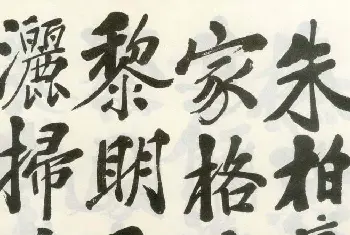 朱柏
家格
黎明
灑掃